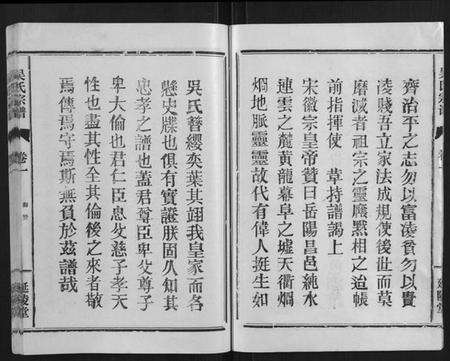 齊治平之志勿以富淩貧勿以貴
淩賤吾立家法成規使後世而莫
磨滅者祖宗之靈廕默相之迨帳
前指揮使 韋持譜謁上
宋徽宗皇帝贊曰岳陽昌邑純水
連雲之麓黃龍幕阜之墟天衝燗
燗地脈靈靈故代有偉人挺生如
吳氏簪纓奕葉其翊我皇家而各
懸史牒也俱有實證朕固以知其
忠孝之譜也蓋君尊臣卑父尊子
卑大倫也君仁臣忠父慈子孝天
性也盡其性全其倫後之來者敬
焉傳焉守焉斯無負於茲譜哉
吳氏宗譜
卷一
延陵堂